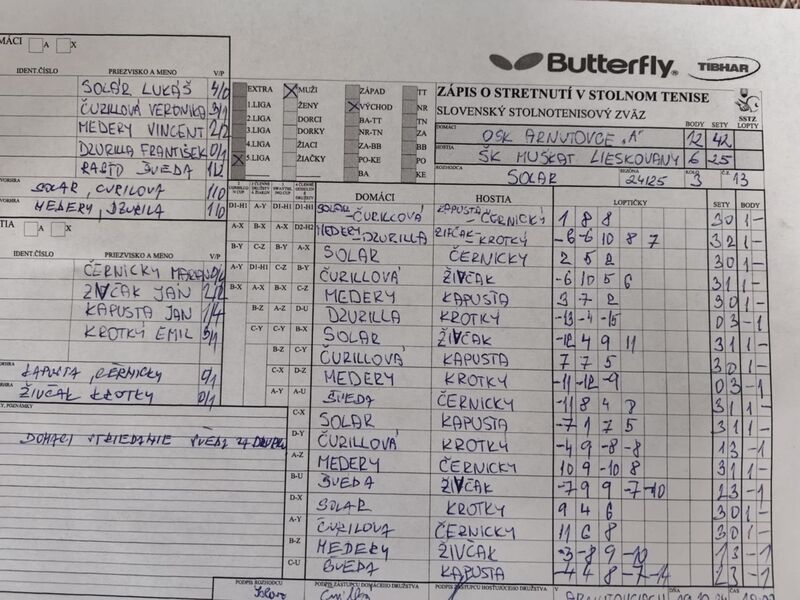 Butterfly TIBHAR
ZÁPIS O STRETNUTÍ V STOLNOM TENISE
SLOVENSKÝ STOLNOTENISOVÝ ZVÄZ
SSTZ
DOMÁCI OSK ARNUTOVCE "A" BODY 12 SETY 42 LOPTY
HOSTIA ŠK MUŠKAT LIESKOVANY 6 25
ROZHODCA SOLAR SEZÓNA 24/25 KOLO 3 Č.S. 13
EXTRA MUŽI ZÁPAD TT
1.LIGA ŽENY VÝCHOD NR
2.LIGA DORCI BA-TT TN
3.LIGA DORKY NR-TN ZA
4.LIGA ŽIACI ZA-BB BB
5.LIGA ŽIAČKY PO-KE PO
BA KE
MÁCI A X
IDENT.ČÍSLO PRIEZVISKO A MENO V/P
SOLÁR LUKÁŠ 4/0
ČURILLOVÁ VERONIKA 3/1
MEDERY VINCENT 2/2
DZURILLA FRANTIŠEK 0/1
RASŤO ŠVEDA 1/2
SOLAR, ČURILOVA 1/0
MEDERY, DZURILA 1/0
TIA A X
IDENT.ČÍSLO PRIEZVISKO A MENO V/P
ČERNICKÝ MARIAN 0/4
ŽIVČAK JÁN 2/2
KAPUSTA JAN 1/4
KROTKÝ EMIL 3/1
KAPUSTA, ČERNICKY 0/1
ŽIVČAK KROTKY 0/1
Y, POZNÁMKY
DOMACI STRIEDANIE ŠVEDA ZA DZURILU
DOMÁCI HOSTIA LOPTIČKY SETY BODY
D1-H1 A-Y D1-H1 D1-H1 SOLAR-ČURILLOVÁ KAPUSTA-ČERNICKÝ 1 8 8 3 0 1 -
A-X B-X A-X D2-H2 MEDERY-DZURILLA ŽIVČAK-KROTKÝ -6 -6 10 8 7 3 2 1 -
B-Y C-Z B-Y A-X SOLAR ČERNICKY 2 5 2 3 0 1 -
A-Y D1-H1 C-Z B-Y ČURILLOVÁ ŽIVČAK -6 10 5 6 3 1 1 -
B-X A-X B-X C-Z MEDERY KAPUSTA 3 7 2 3 0 1 -
B-Z A-Z D-U DZURILLA KROTKÝ -13 -4 -15 0 3 - 1
C-Y C-Y B-X SOLAR ŽIVČAK -12 4 9 11 3 1 1 -
B-Z C-Y ČURILLOVÁ KAPUSTA 7 7 5 3 0 1 -
C-X D-Z MEDERY KROTKÝ -11 -12 -9 0 3 - 1
A-Y A-U ŠVEDA ČERNICKY -11 8 4 8 3 1 1 -
C-X SOLAR KAPUSTA -7 1 7 5 3 1 1 -
D-Y ČURILLOVÁ KROTKY -4 9 -8 -8 1 3 - 1
A-Z MEDERY ČERNICKY 10 9 -10 8 3 1 1 -
B-U ŠVEDA ŽIVČAK -7 9 9 -7 -10 2 3 - 1
D-X SOLAR KROTKY 9 4 6 3 0 1 -
A-Y ČURILOVA ČERNICKY 11 6 8 3 0 1 -
B-Z MEDERY ŽIVČAK -3 -8 9 -10 1 3 - 1
C-U ŠVEDA KAPUSTA -4 4 8 -7 -14 2 3 - 1
PODPIS ROZHODCU PODPIS ZÁSTUPCU DOMÁCEHO DRUŽSTVA PODPIS ZÁSTUPCU HOSŤUJÚCEHO DRUŽSTVA V DŇA